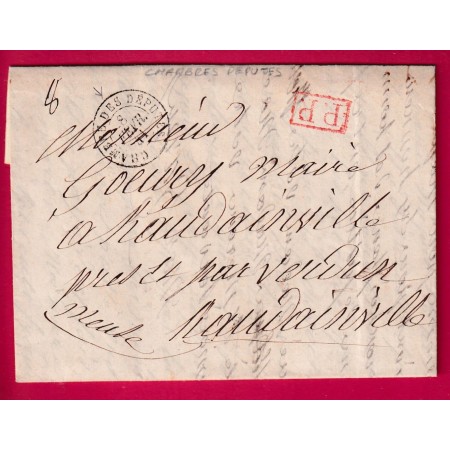 CHAMBRES DEPUTES
8
CHAMBRE DES DÉPUTÉS
P.P
Monsieur
Goeury Maire
à haudainville
près et par verdun
Meuse haudainville